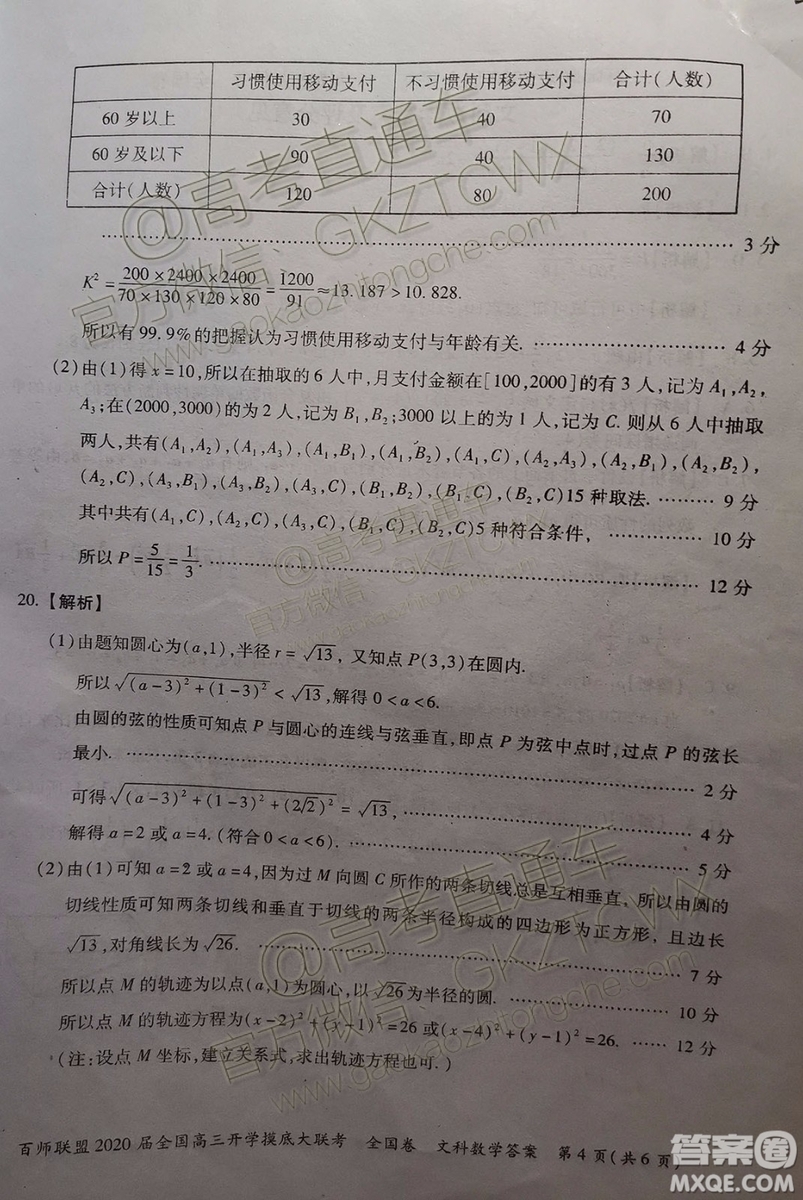 习惯使用移动支付 不习惯使用移动支付 合计(人数)
60 岁以上 30 40 70
60 岁及以下 90 40 130
合计(人数) 120 80 200
………… 3 分
K²=200×2400×2400/70×130×120×80=1200/91≈13.187>10.828.
所以有 99.9%的把握认为习惯使用移动支付与年龄有关. ………… 4 分
(2)由(1)得 x=10,所以在抽取的 6 人中,月支付金额在[100,2000]的有 3 人,记为 A₁,A₂,
A₃;在(2000,3000)的为 2 人,记为 B₁,B₂;3000 以上的为 1 人,记为 C. 则从 6 人中抽取
两人,共有(A₁,A₂),(A₁,A₃),(A₁,B₁),(A₁,B₂),(A₁,C),(A₂,A₃),(A₂,B₁),(A₂,B₂),
(A₂,C),(A₃,B₁),(A₃,B₂),(A₃,C),(B₁,B₂),(B₁,C),(B₂,C)15 种取法. ………… 9 分
其中共有(A₁,C),(A₂,C),(A₃,C),(B₁,C),(B₂,C)5 种符合条件, ………… 10 分
所以 P=5/15=1/3. ………… 12 分
20.【解析】
(1)由题知圆心为(a,1),半径 r=√13, 又知点 P(3,3)在圆内.
所以√((a-3)²+(1-3)²)<√13,解得 0<a<6.
由圆的弦的性质可知点 P 与圆心的连线与弦垂直,即点 P 为弦中点时,过点 P 的弦长
最小. ………… 2 分
可得√((a-3)²+(1-3)²+(2√2)²)=√13, ………… 4 分
解得 a=2 或 a=4. (符合 0<a<6). ………… 5 分
(2)由(1)可知 a=2 或 a=4,因为过 M 向圆 C 所作的两条切线总是互相垂直、所以由圆的
切线性质可知两条切线和垂直于切线的两条半径构成的四边形为正方形，且边长
√13,对角线长为√26. ………… 7 分
所以点 M 的轨迹为以点(a,1)为圆心,以√26为半径的圆. ………… 10 分
所以点 M 的轨迹方程为(x-2)²+(y-1)²=26 或(x-4)²+(y-1)²=26. …… 12 分
(注:设点 M 坐标,建立关系式,求出轨迹方程也可. )
百师联盟 2020 届全国高三开学摸底大联考 全国卷 文科数学答案 第 4 页(共 6 页)
@高考直通车
官方微信：GKZTCWX
www.gaokaozhitongche.com
@高考直通车
官方微信：GKZTCWX
www.gaokaozhitongche.com
@高考直通车
官方微信：GKZTCWX
www.gaokaozhitongche.com
答案圈
MXQE.COM